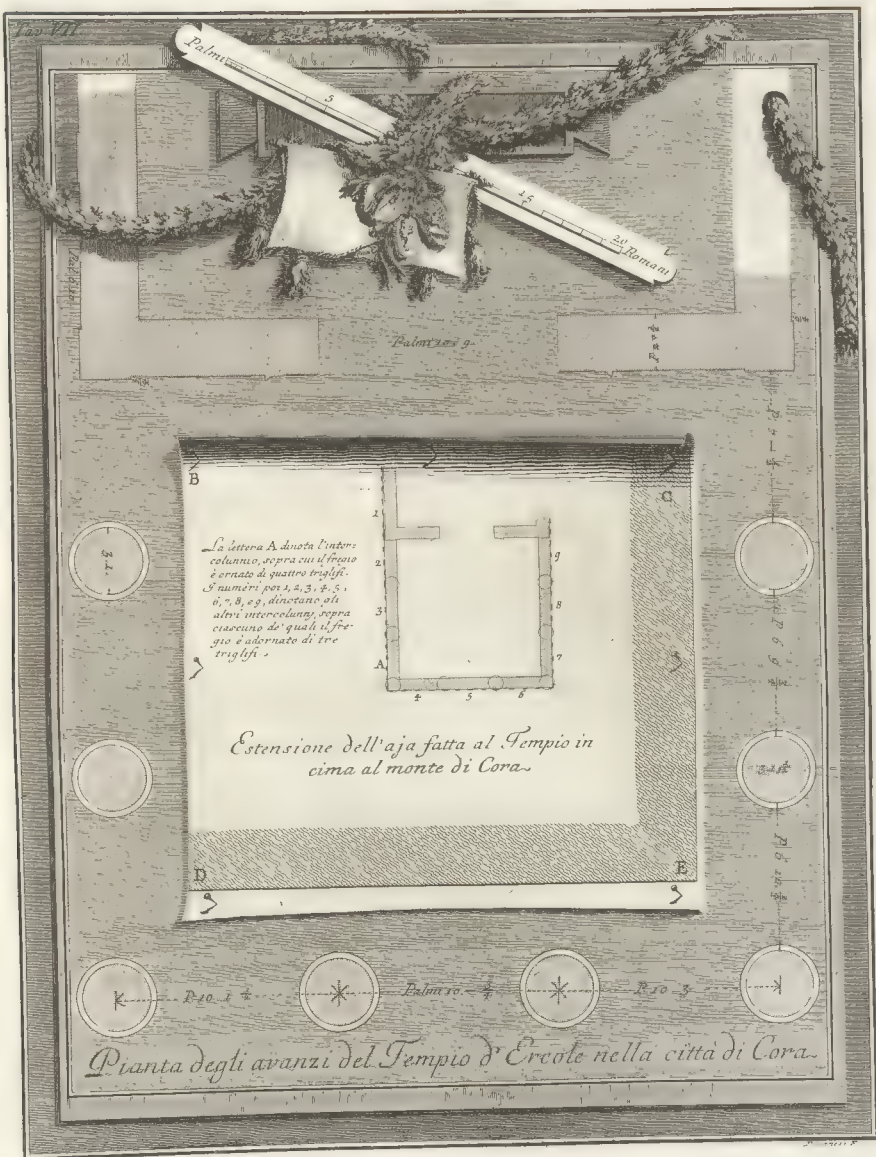 Tav. VII.
Palmi 5
15 20 Romani
Palmi 10 9
B
C
La lettera A dinota l'inter=
colunnio, sopra cui il fregio
è ornato di quattro triglifi.
I numeri poi 1, 2, 3, 4, 5,
6, 7, 8, e 9, dinotano gli
altri intercolunnj, sopra
ciascuno de' quali il fre-
gio è adornato di tre
triglifi.
1
2
3
A
4 5 6
9
8
7
Estensione dell'aja fatta al Tempio in
cima al monte di Cora
D
E
P. 10 1
Palmi 10
P. 10 3
Pianta degli avanzi del Tempio d'Ercole nella città di Cora